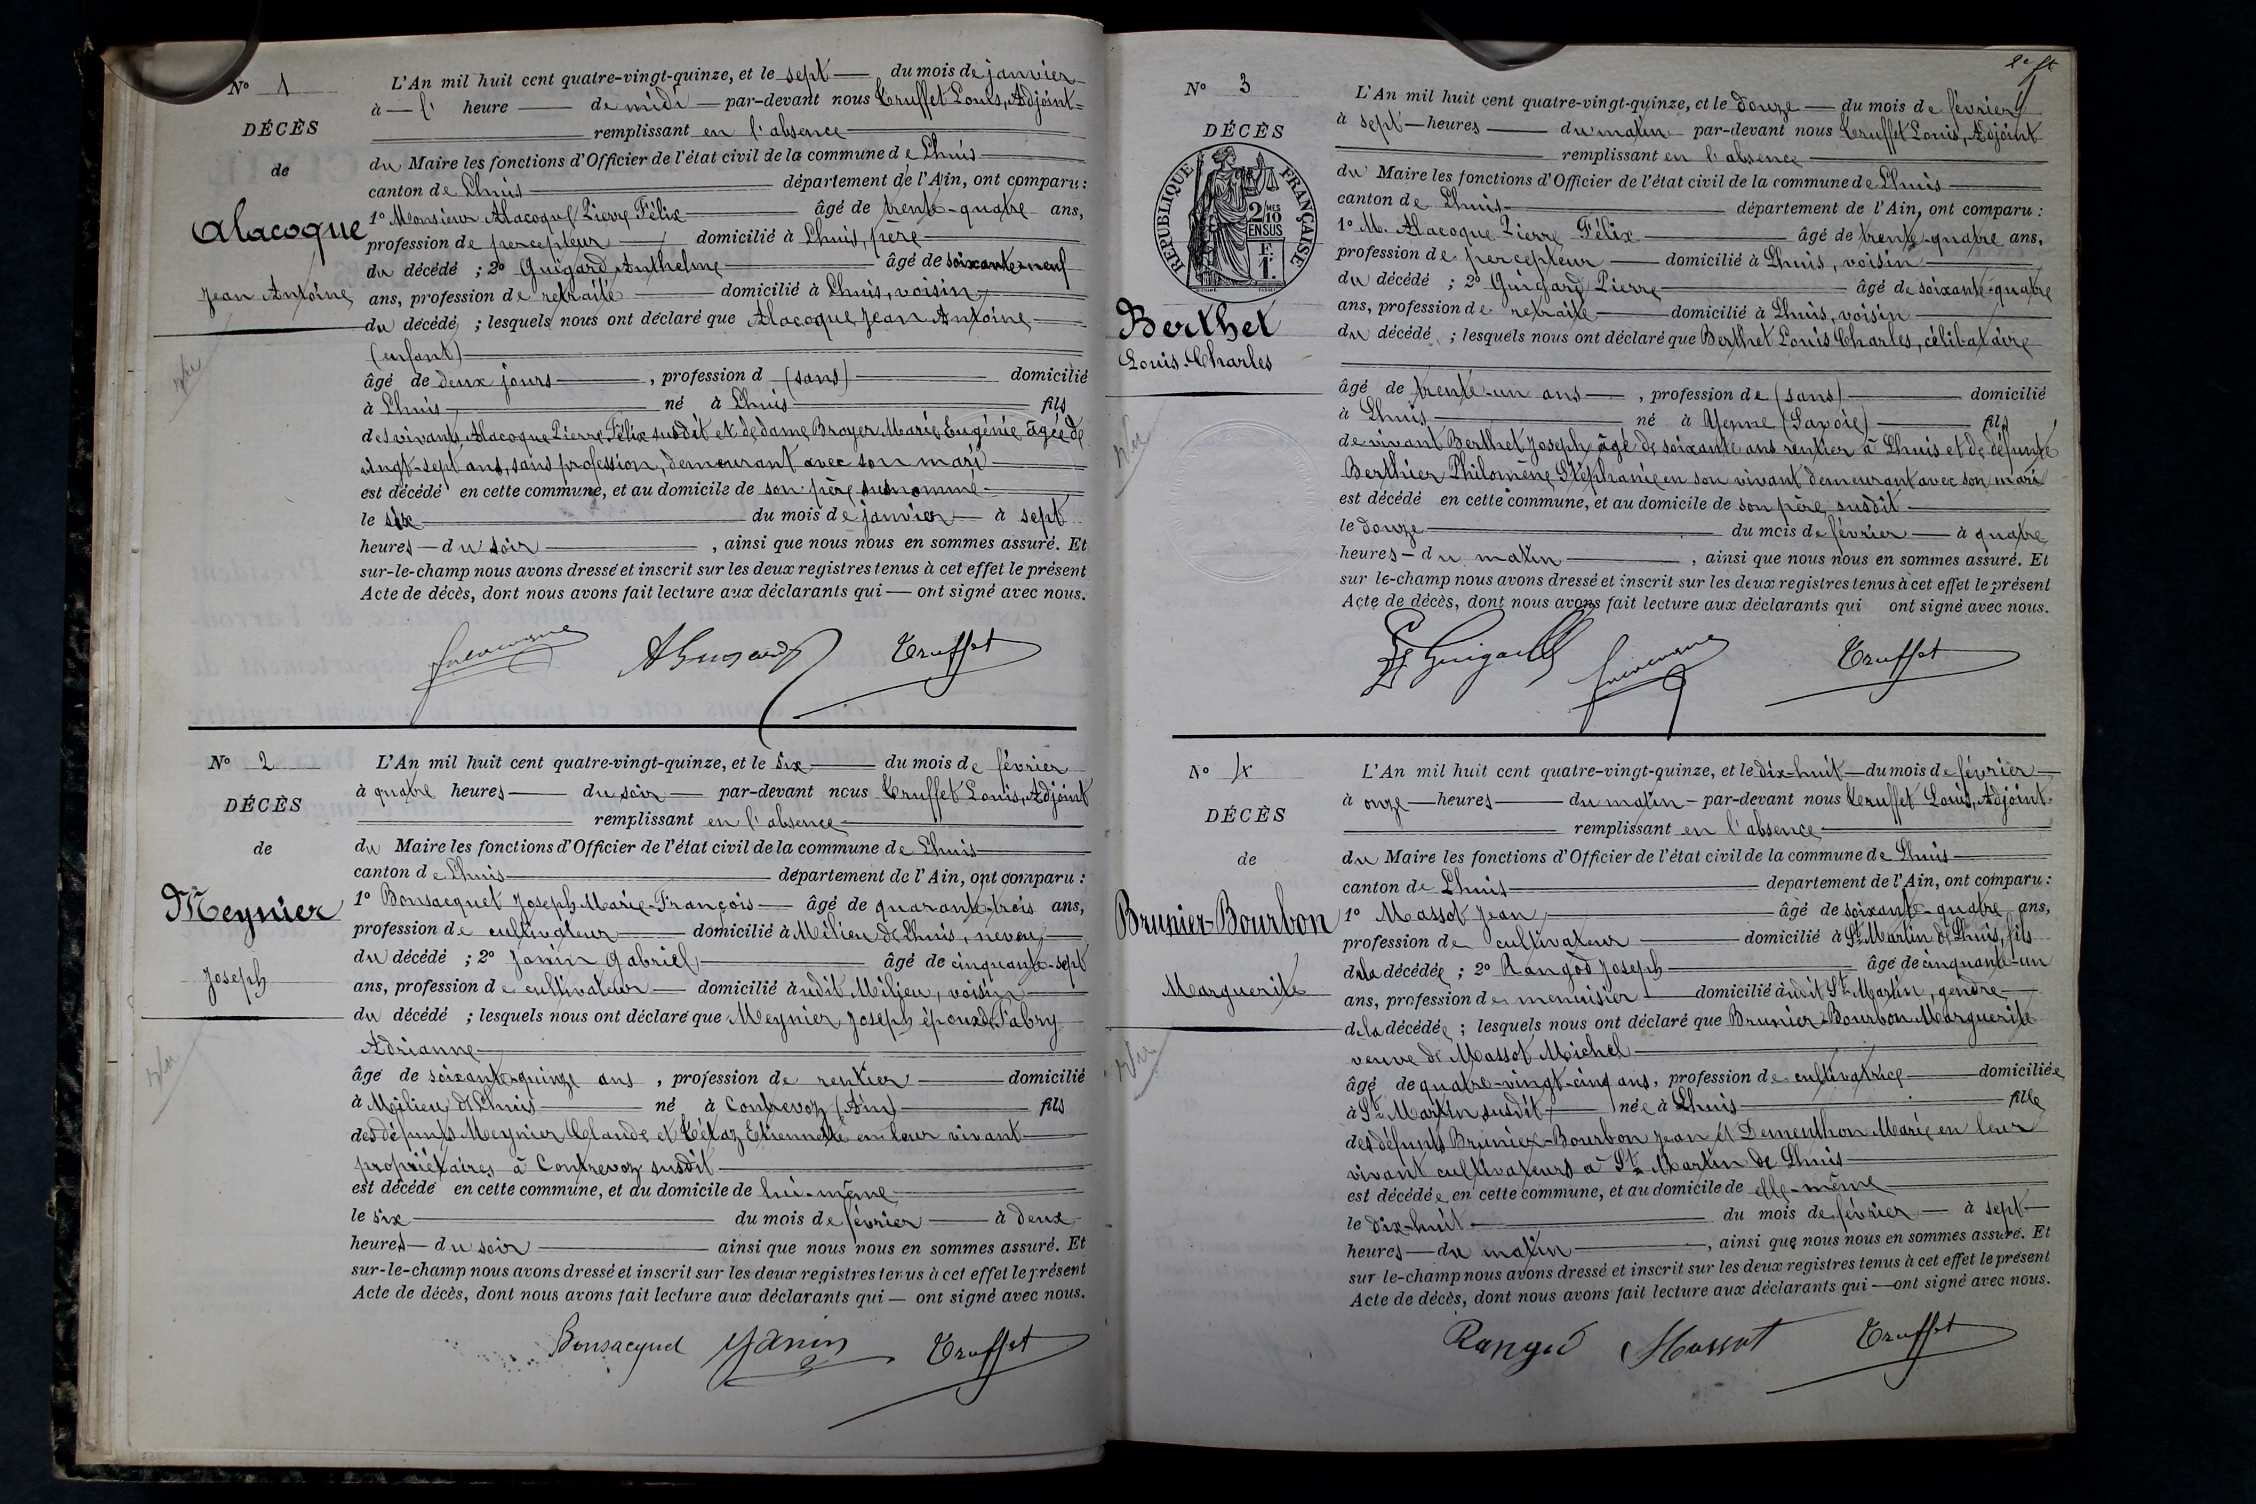 Nº 1
DÉCÈS
de
Alacoque
Jean Antoine
L'An mil huit cent quatre-vingt-quinze, et le sept du mois de janvier
à l' heure de midi par-devant nous Truffet Louis, Adjoint
remplissant en l'absence
du Maire les fonctions d'Officier de l'état civil de la commune de Lhuis
canton de Lhuis département de l'Ain, ont comparu :
1º Monsieur Alacoque Pierre Félix âgé de trente-quatre ans,
profession de percepteur domicilié à Lhuis, père
du décédé ; 2º Guigard Anthelme âgé de soixante-neuf
ans, profession de retraité domicilié à Lhuis, voisin
du décédé ; lesquels nous ont déclaré que Alacoque Jean Antoine
(enfant)
âgé de deux jours , profession d (sans) domicilié
à Lhuis né à Lhuis fils
des vivants Alacoque Pierre Félix susdit et de dame Broyer Marie Eugénie âgée de
vingt-sept ans, sans profession, demeurant avec son mari
est décédé en cette commune, et au domicile de son père susnommé
le six du mois de janvier à sept
heures du soir , ainsi que nous nous en sommes assuré. Et
sur-le-champ nous avons dressé et inscrit sur les deux registres tenus à cet effet le présent
Acte de décès, dont nous avons fait lecture aux déclarants qui ont signé avec nous.
AGuigard Truffet
Nº 2
DÉCÈS
de
Meynier
Joseph
L'An mil huit cent quatre-vingt-quinze, et le six du mois de février
à quatre heures du soir par-devant nous Truffet Louis, Adjoint
remplissant en l'absence
du Maire les fonctions d'Officier de l'état civil de la commune de Lhuis
canton de Lhuis département de l'Ain, ont comparu :
1º Bonsacquet Joseph-Marie-François âgé de quarante-trois ans,
profession de cultivateur domicilié à Milieu de Lhuis, neveu
du décédé ; 2º Janin Gabriel âgé de cinquante-sept
ans, profession de cultivateur domicilié àudit Milieu, voisin
du décédé ; lesquels nous ont déclaré que Meynier Joseph époux de Fabry
Adrianne
âgé de soixante-quinze ans , profession de rentier domicilié
à Milieu de Lhuis né à Contrevoz (Ain) fils
des défunts Meynier Claude et Tétaz Etiennette en leur vivant
propriétaires à Contrevoz susdit
est décédé en cette commune, et au domicile de lui-même
le six du mois de février à deux
heures du soir ainsi que nous nous en sommes assuré. Et
sur-le-champ nous avons dressé et inscrit sur les deux registres tenus à cet effet le présent
Acte de décès, dont nous avons fait lecture aux déclarants qui ont signé avec nous.
Bonsacquet Janin Truffet
Nº 3
DÉCÈS
RÉPUBLIQUE FRANÇAISE
2/10 MES
EN SUS
1 F.
Berthet
Louis-Charles
L'An mil huit cent quatre-vingt-quinze, et le douze du mois de février
à sept heures du matin par-devant nous Truffet Louis, Adjoint
remplissant en l'absence
du Maire les fonctions d'Officier de l'état civil de la commune de Lhuis
canton de Lhuis département de l'Ain, ont comparu :
1º M. Alacoque Pierre Félix âgé de trente-quatre ans,
profession de percepteur domicilié à Lhuis, voisin
du décédé ; 2º Guigard Pierre âgé de soixante-quatre
ans, profession de retraité domicilié à Lhuis, voisin
du décédé ; lesquels nous ont déclaré que Berthet Louis Charles, célibataire
âgé de trente-un ans , profession de (sans) domicilié
à Lhuis né à Yenne (Savoie) fils
de vivant Berthet Joseph âgé de soixante ans rentier à Lhuis et de défunte
Berthier Philomène Stéphanie en son vivant demeurant avec son mari
est décédé en cette commune, et au domicile de son père susdit
le douze du mois de février à quatre
heures du matin , ainsi que nous nous en sommes assuré. Et
sur le-champ nous avons dressé et inscrit sur les deux registres tenus à cet effet le présent
Acte de décès, dont nous avons fait lecture aux déclarants qui ont signé avec nous.
Guigard Truffet
Nº 4
DÉCÈS
de
Brunier-Bourbon
Marguerite
L'An mil huit cent quatre-vingt-quinze, et le dix-huit du mois de février
à onze heures du matin par-devant nous Truffet Louis, Adjoint
remplissant en l'absence
du Maire les fonctions d'Officier de l'état civil de la commune de Lhuis
canton de Lhuis département de l'Ain, ont comparu :
1º Massot Jean âgé de soixante-quatre ans,
profession de cultivateur domicilié à St Martin de Lhuis, fils
de la décédée ; 2º Rangod Joseph âgé de cinquante-un
ans, profession de menuisier domicilié àudit St Martin, gendre
de la décédée ; lesquels nous ont déclaré que Brunier-Bourbon Marguerite
veuve de Massot Michel
âgé de quatre-vingt-cinq ans, profession de cultivatrice domiciliée
à St Martin susdit née à Lhuis fille
des défunts Brunier-Bourbon Jean et Dementhon Marie en leur
vivant cultivateurs à St Martin de Lhuis
est décédée en cette commune, et au domicile de elle-même
le dix-huit du mois de février à sept
heures du matin , ainsi que nous nous en sommes assuré. Et
sur le-champ nous avons dressé et inscrit sur les deux registres tenus à cet effet le présent
Acte de décès, dont nous avons fait lecture aux déclarants qui ont signé avec nous.
Rangod Massot Truffet